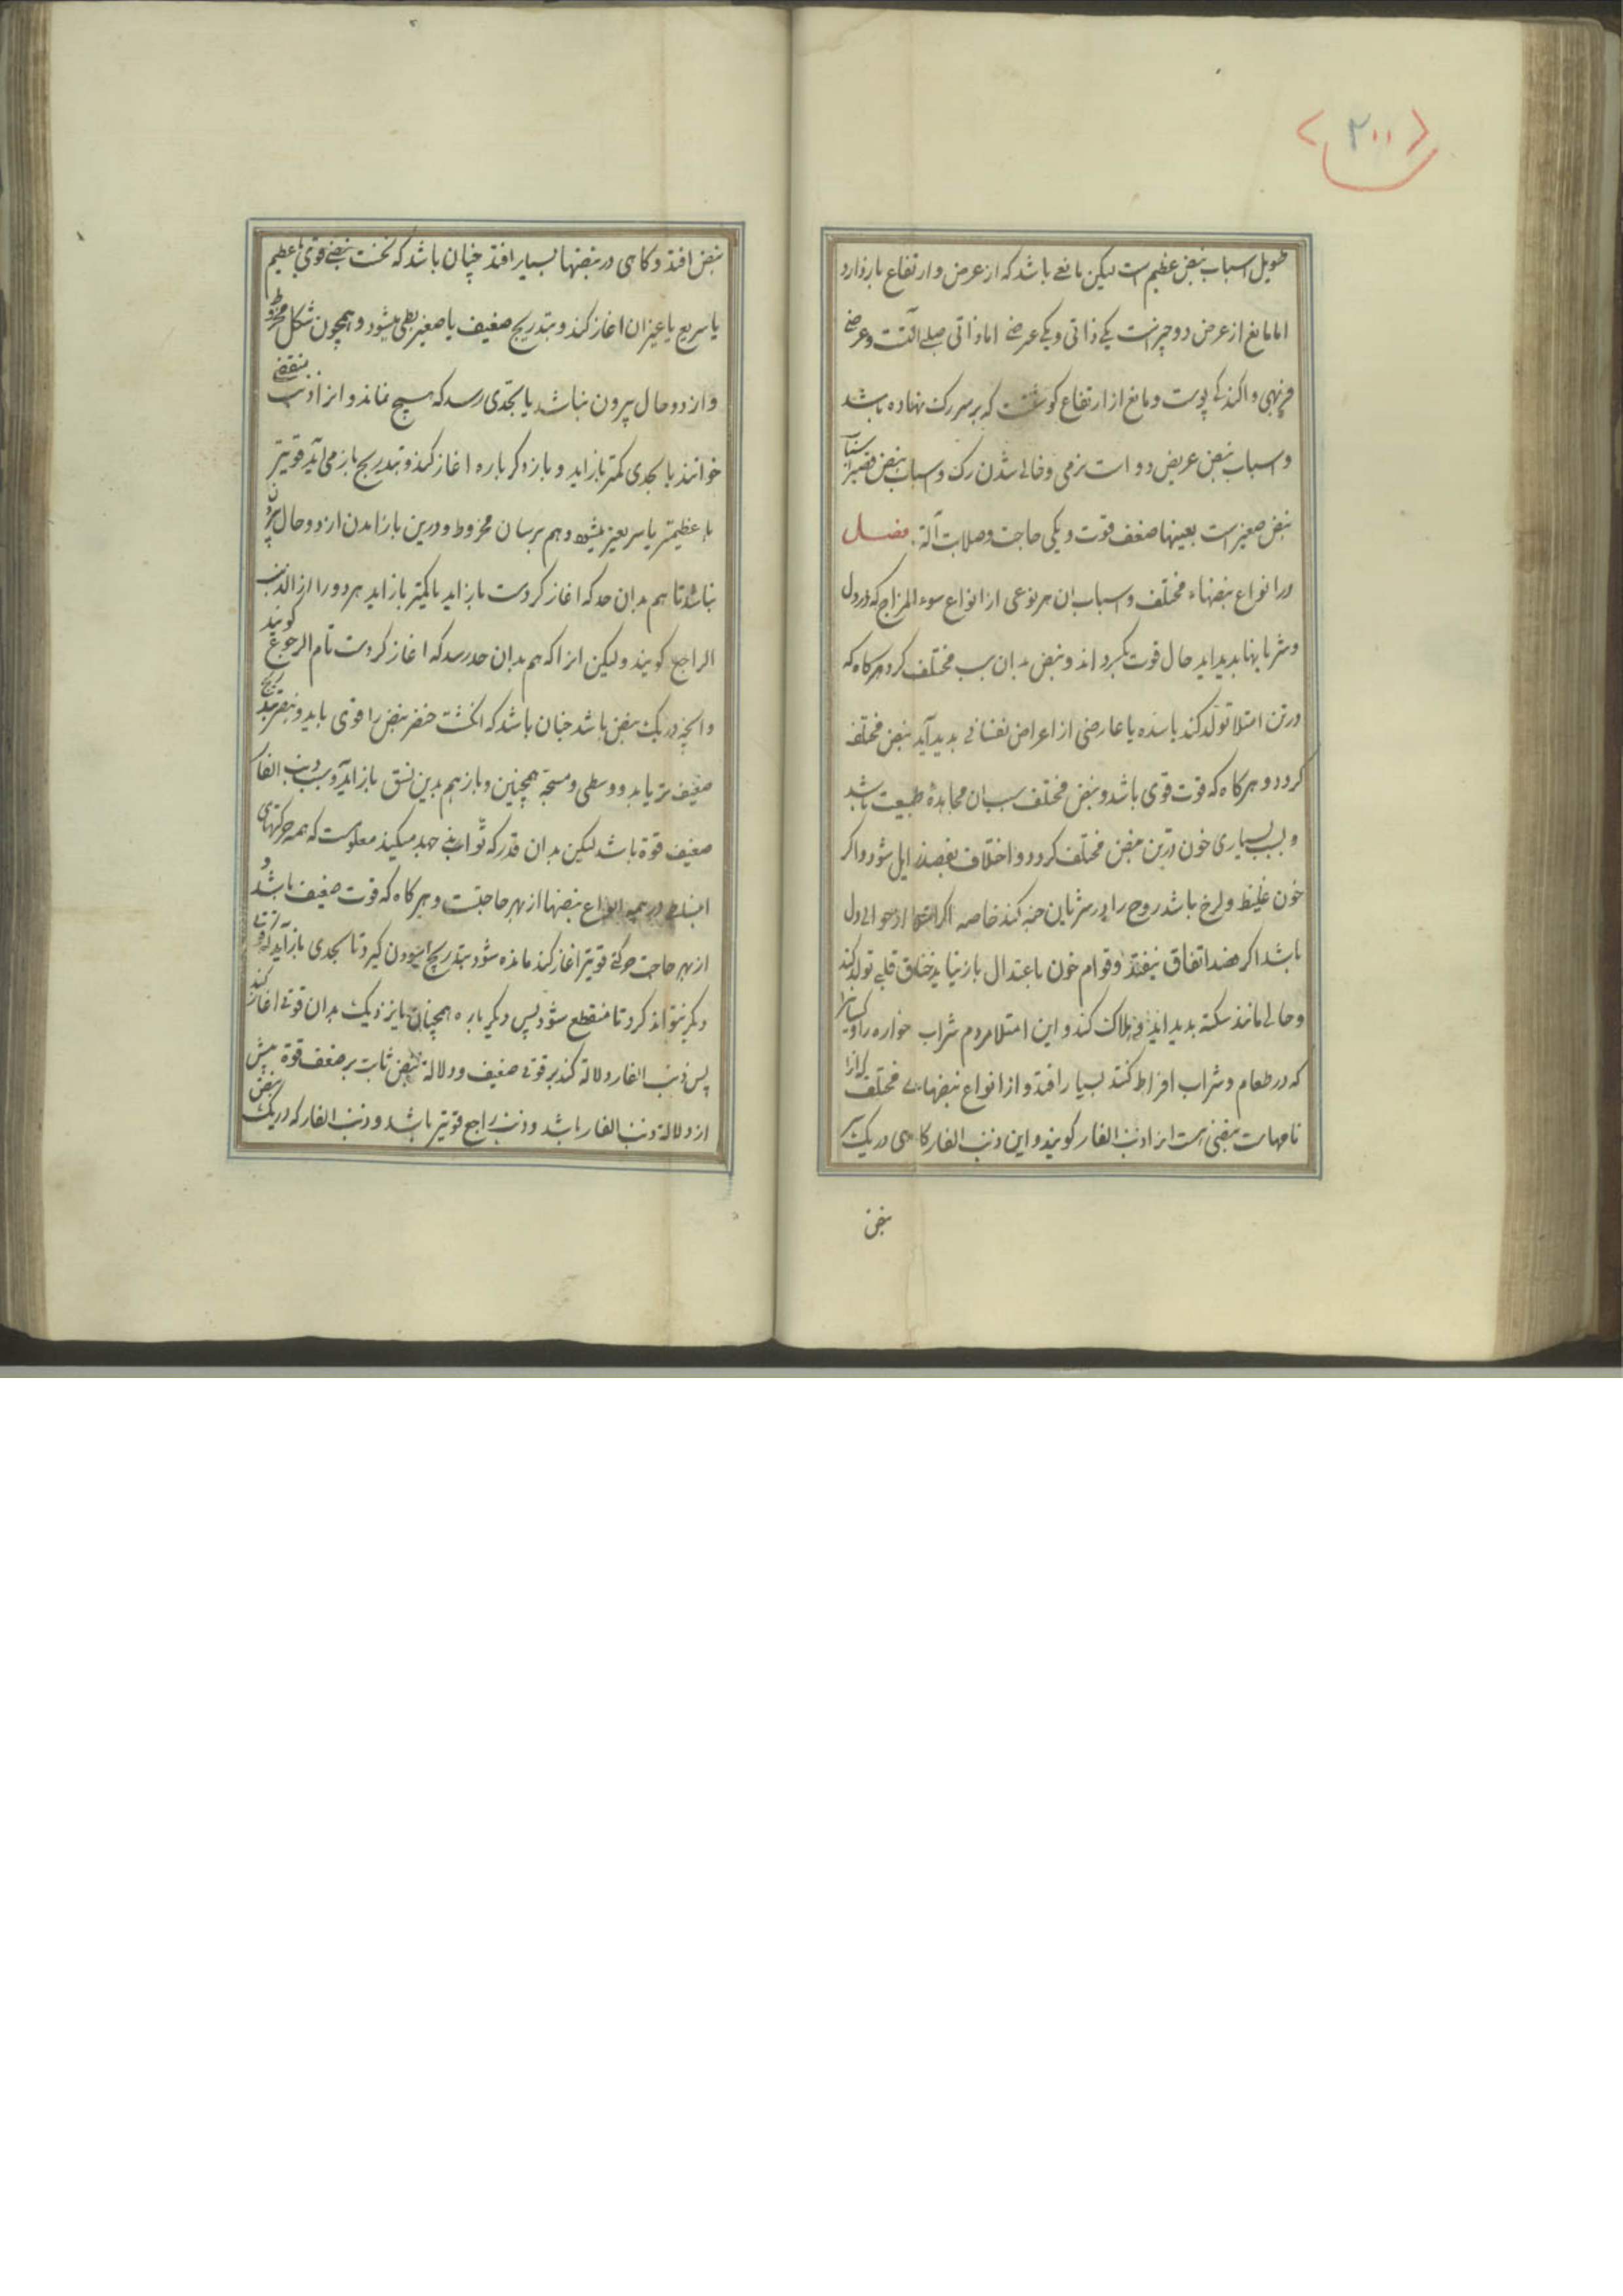 ۲۰۰
طویل اسباب نبض عظیم است لیکن مانعی باشد که از عرض و ارتفاع باز دارد
اما مانع از عرض دو چیزست یکی ذاتی و یکی عرضی اما ذاتی صلبی آلتست و عرضی
فربهی و اکندکی پوست و مانع از ارتفاع کوشتست که بر سر رک نهاده باشد
و اسباب نبض عریض دو است نرمی و خالی شدن رک و اسباب نبض قصیر اسباب
نبض صغیر است بعینها ضعف قوت و یکی حاجت و صلابت آلة فصل
در انواع نبضهاء مختلف و اسباب ان هر نوعی از انواع سوء المزاج که در دل
و شریانها بدید اید حال قوت بکرداند و نبض بدان سبب مختلف کردد هرکاه که
در تن امتلا تولد کند یا سده یا عارضی از اعراض نفسانی بدید آید نبض مختلف
کردد و هرکاه که قوت قوی باشد و نبض مختلف سبب ان مجاهدۀ طبیعت باشد
و بسبب بسیاری خون در تن نبض مختلف کردد و اختلاف بفصد زایل شود و اکر
خون غلیظ و لزج باشد روح را در شریان خبه کند خاصه اکر امتلا از حوالی دل
باشد اکر فصد اتفاق نیفتد و قوام خون باعتدال باز نیاید خناق قلبی تولد کند
و حالی مانند سکته بدید اید و هلاک کند و این امتلا مردم شراب خواره را و کسانیرا
که در طعام و شراب افراط کنند بسیار افتد و از انواع نبضهاء مختلف که انرا
نامهاست نبضی است انرا ذنب الفار کویند و این ذنب الفار کاهی در یک
نبض
نبض افتد و کاهی در نبضها بسیار افتد چنان باشد که نخست نبضی قوی یا عظیم
یا سریع یا غیر ان اغاز کند و بتدریج ضعیف یا صغیر یا بطی میشود و همچون شکل مخروط
و از دو حال بیرون نباشد یا بحدی رسد که هیچ نماند و انرا ذنب منقضی
خوانند یا بحدی کمتر باز اید و باز دکر باره اغاز کند و بتدریج باز می آید قویتر
یا عظیمتر یا سریعتر میشود و هم برسان مخروط و درین باز امدن از دو حال بیرون
نباشد تا هم بدان حد که اغاز کردست باز اید یا کمتر باز اید هر دو را الذنب
الراجع کویند و لیکن انرا که هم بدان حد رسد که اغاز کردست تام الرجوع کویند
و انچه در یک نبض باشد چنان باشد که انکشت خنصر نبض را قوی یابد و بنصر بتدریج
ضعیف تر یابد و وسطی و مسبحة همچنین و باز هم بدین نسق باز اید و سبب ذنب الفار
ضعیف قوة باشد لیکن بدان قدر که تواند جهد میکند معلومست که همه حرکتهای
انبساطی در همه انواع نبضها از بهر حاجتست و هرکاه که قوت ضعیف باشد و
از بهر حاجت حرکتی قویتر اغاز کند مانده شود بتدریج اسودن کیرد تا بحدی باز آید
دیکر نتواند کرد تا منقطع شود پس دیکر باره همچنان یا نزدیک بدان قوتی اغاز کند
پس ذنب الفار دلالة کند بر قوتی ضعیف و دلالة نبض ثابت بر ضعف قوة بیش
از دلالة ذنب الفار باشد و ذنب راجع قویتر باشد و ذنب الفار که در یک نبض